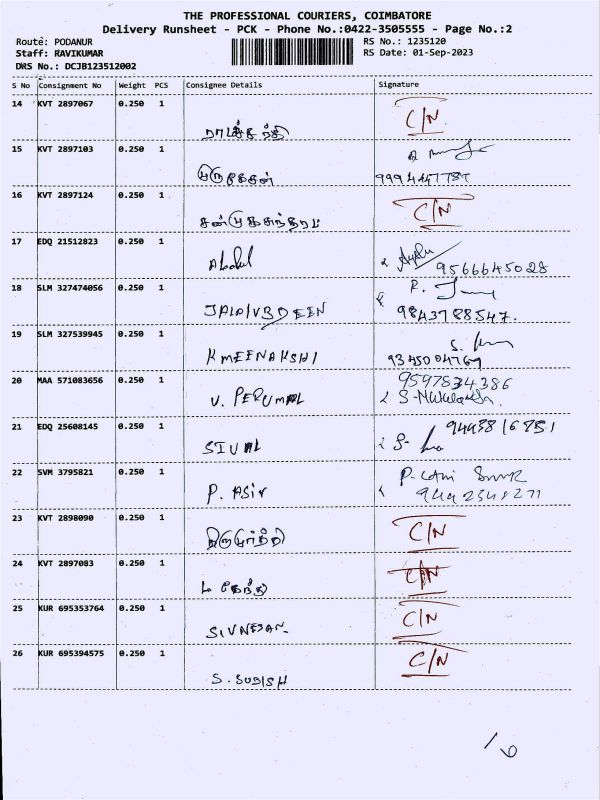 THE PROFESSIONAL COURIERS, COIMBATORE
Delivery Runsheet - PCK - Phone No.:0422-3505555 - Page No.:2
Route: PODANUR RS No.: 1235120
Staff: RAVIKUMAR RS Date: 01-Sep-2023
DRS No.: DCJB123512002
S No Consignment No Weight PCS Consignee Details Signature
14 KVT 2897067 0.250 1 C/N
15 KVT 2897103 0.250 1
முருகேசன்
16 KVT 2897124 0.250 1 C/N
17 EDQ 21512823 0.250 1
Abdul 9566645028
18 SLM 327474056 0.250 1 R.
9843788547.
19 SLM 327539945 0.250 1 S.
K MEENAKSHI 9345004769
20 MAA 571083656 0.250 1 9597834386
V. PERUMAL
21 EDQ 25608145 0.250 1
22 SVM 3795821 0.250 1
P. ASIV
23 KVT 2898090 0.250 1 C/N
24 KVT 2897083 0.250 1 C/N
25 KUR 695353764 0.250 1 C/N
SIVNESAN
26 KUR 695394575 0.250 1 C/N
S. SUDISH